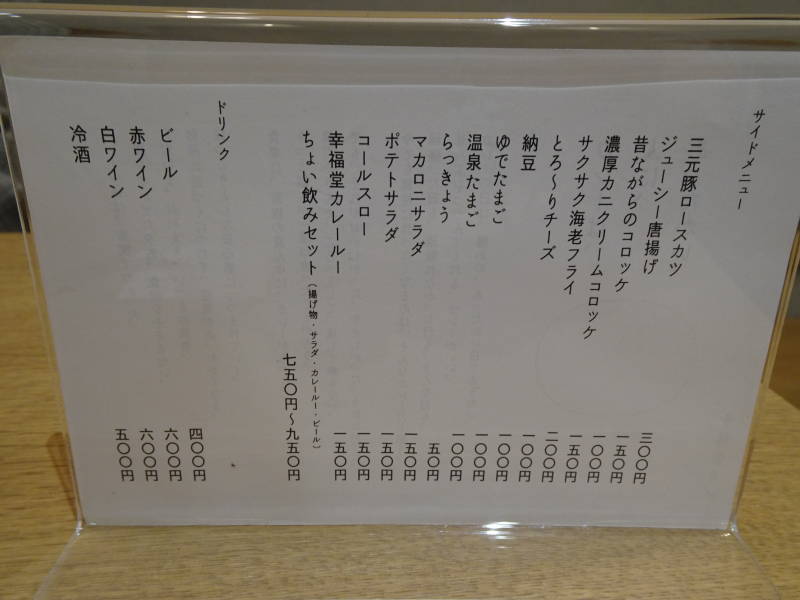 サイドメニュー
三元豚ロースカツ 三〇〇円
ジューシー唐揚げ 一五〇円
昔ながらのコロッケ 一〇〇円
濃厚カニクリームコロッケ 一五〇円
サクサク海老フライ 二〇〇円
とろ〜りチーズ 一〇〇円
納豆 一〇〇円
ゆでたまご 一〇〇円
温泉たまご 一〇〇円
らっきょう 五〇円
マカロニサラダ 一五〇円
ポテトサラダ 一五〇円
コールスロー 一五〇円
幸福堂カレールー 一五〇円
ちょい飲みセット(揚げ物・サラダ・カレールー・ビール)
七五〇円〜九五〇円
ドリンク
ビール 四〇〇円
赤ワイン 六〇〇円
白ワイン 六〇〇円
冷酒 五〇〇円